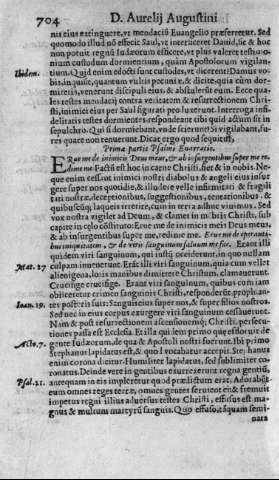 704 D. Aurelij Augustini
nis eius extinguere, vt mendaciũ Euangelio præferretur. Sed
quomodo illud nõ effecit Saul, vt interimeret Dauid, sic & hoc
non potuit regnũ Iudæorum efficere, vt plus valeret testimo-
nium custodum dormientium, quàm Apostolorum vigilan-
Ibidem. tium. Quid enim edocti sunt custodes, vt dicerent? Damus vo-
bis, inquiũt, quantum vultis pecuniæ, & dicite quia cũm dor-
miretis, venerunt discipuli eius, & abstulerunt eum. Ecce qua-
les testes mendacij contra veritatem & resurrectionem Chri-
sti, inimici eius per Saul figurati produxerunt. Interroga infi-
delitas testes dormientes, respondeant tibi quid actum sit in
sepulchro. Qui si dormiebant, vnde scierunt? Si vigilabant, fu-
res quare non tenuerunt. Dicat ergo quod sequitur,
Prima partis Psalmi Enarratio.
ERue me de inimicis Deus meus, & ab insurgentibus super me re-
dime me. Factũ est hoc in carne Christi, fiet & in nobis. Ne-
que enim cessant inimici nostri diabolus & angeli eius insur-
gere super nos quotidie, & illudere velle infirmitati & fragili
tati nostræ, deceptionibus, suggestionibus, tentationibus, &
quibuscũq; laqueis irretire, cum in terra adhuc viuimus. Sed
vox nostra vigilet ad Deum, & clamet in mẽbris Christi, sub
capite in cęlo cõstituto: Erue me de inimicis meis Deus meus,
& ab insurgentibus super me, redime me. Erue me de operanti-
bus iniquitatem, & de viris sanguinum saluum me fac. Erant illi
quidem viri sanguinum, qui iustũ occiderunt, in quo nullam
Mat. 27 culpam inuenerunt. Erãt illi viri sanguinum, quia cum vellet
alienigena, lotis manibus dimittere Christum, clamauerunt:
Crucifige crucifige. Erant viri sanguinum, quibus cùm iam
obiiceretur crimen sanguinis Christi, responderũt, propinan-
Ioann. 19. tes posteris suis: Sanguis eius super nos, & super filios nostros.
Sed nec in eius corpus exurgere viri sanguinum cessauerunt.
Nam & post resurrectionem & ascensionẽ Christi, persecu-
tiones passa est Ecclesia. Et illa quidem primò quę effloruit de
Acto. 7. gente Iudæorum, de qua & Apostoli nostri fuerunt. Ibi primo
Stephanus lapidatus est, & quod vocabatur accepit. Stephanus
enim corona dicitur. Humiliter lapidatus, sed sublimiter co-
ronatus. Deinde verò in gentibus exurrexerunt regna gentiũ,
Psal. 21. antequam in eis impleretur quod prædictum erat: Adorabũt
eum omnes reges terræ, omnes gentes seruient ei: & fremuit
impetus regni illius aduersus testes Christi, effusus est ma-
gnus & multum martyrũ sanguis. Quo effuso, tãquam semi-
nata